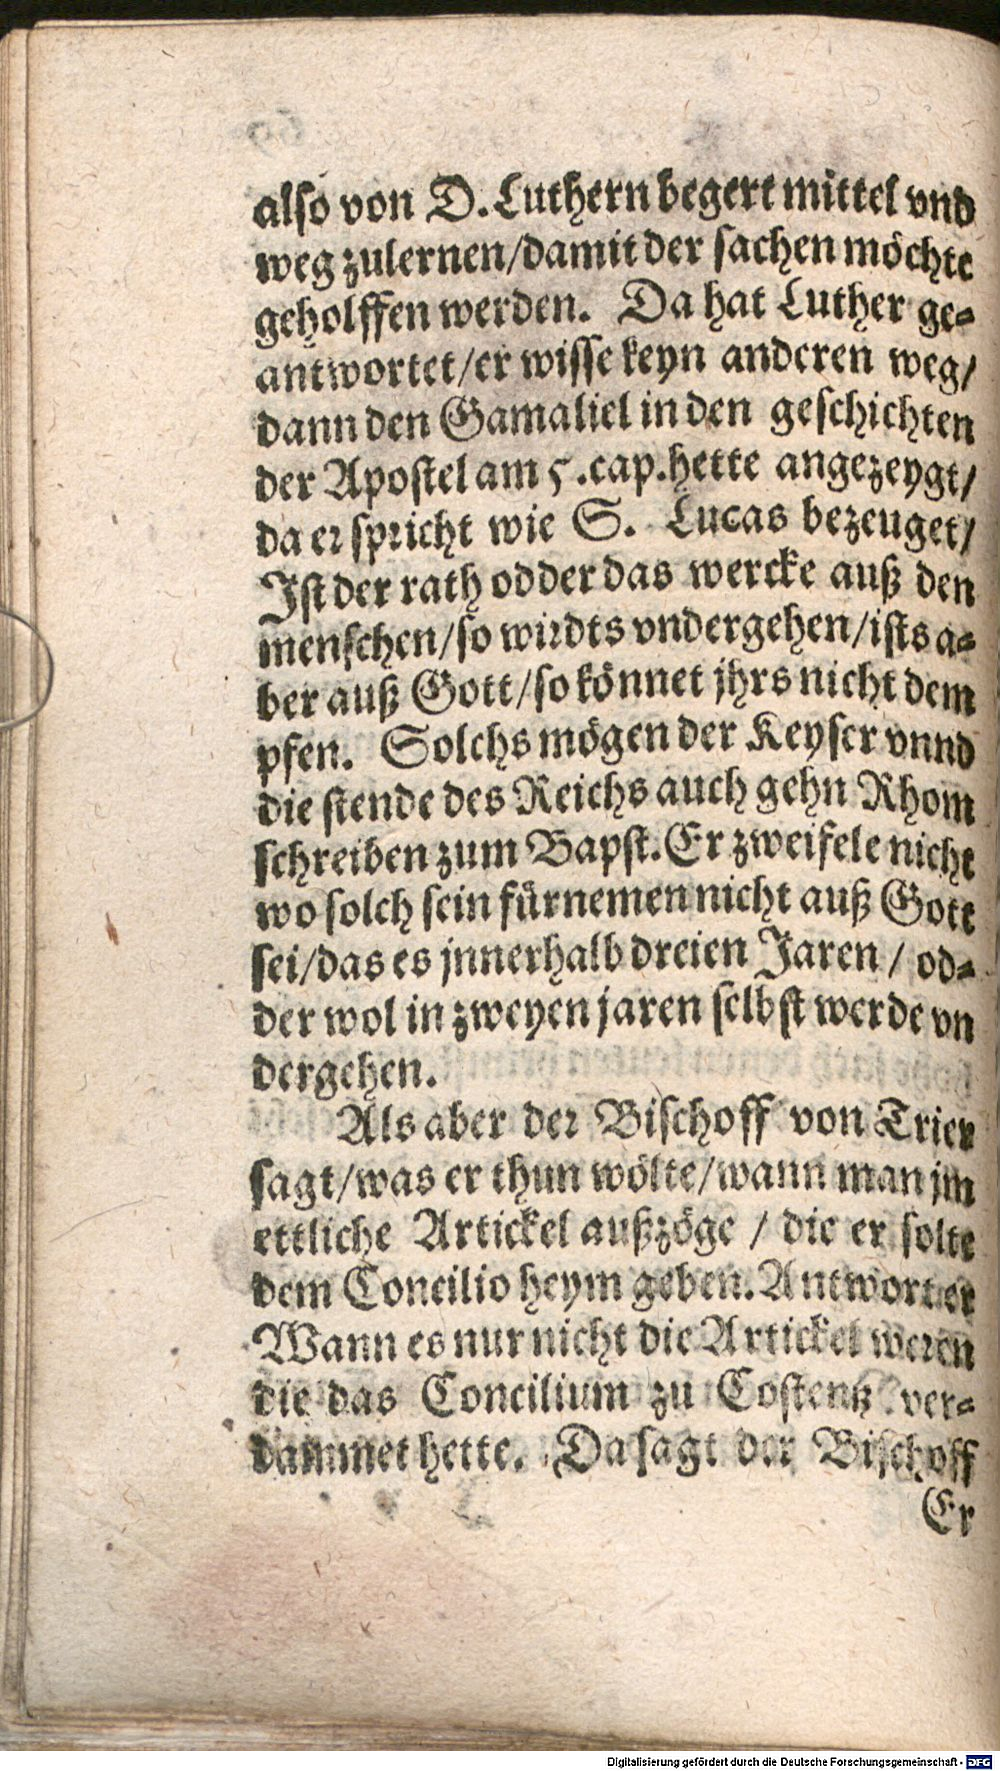 also von D. Luthern begert mittel vnd
weg zulernen/damit der sachen möchte
geholffen werden. Da hat Luther ge-
antwortet/er wisse keyn anderen weg/
dann den Gamaliel in den geschichten
der Apostel am 5.cap.hette angezeygt/
da er spricht wie S. Lucas bezeuget/
Ist der rath odder das wercke auß den
menschen/so wirdts vndergehen/ists a-
ber auß Gott/so könnet jhrs nicht dem
pfen. Solchs mögen der Keyser vnnd
die stende des Reichs auch gehn Rhom
schreiben zum Bapst. Er zweifele nicht
wo solch sein fürnemen nicht auß Gott
sei/das es jnnerhalb dreien Jaren / od-
der wol in zweyen jaren selbst werde vn
dergehen.
Als aber der Bischoff von Trier
sagt/was er thun wölte/wann man jm
ettliche Artickel außzöge / die er solte
dem Concilio heym geben. Antwort er
Wann es nur nicht die Artickel weren
die das Concilium zu Costentz ver-
dammet hette. Da sagt der Bischoff
Er
Digitalisierung gefördert durch die Deutsche Forschungsgemeinschaft - DFG